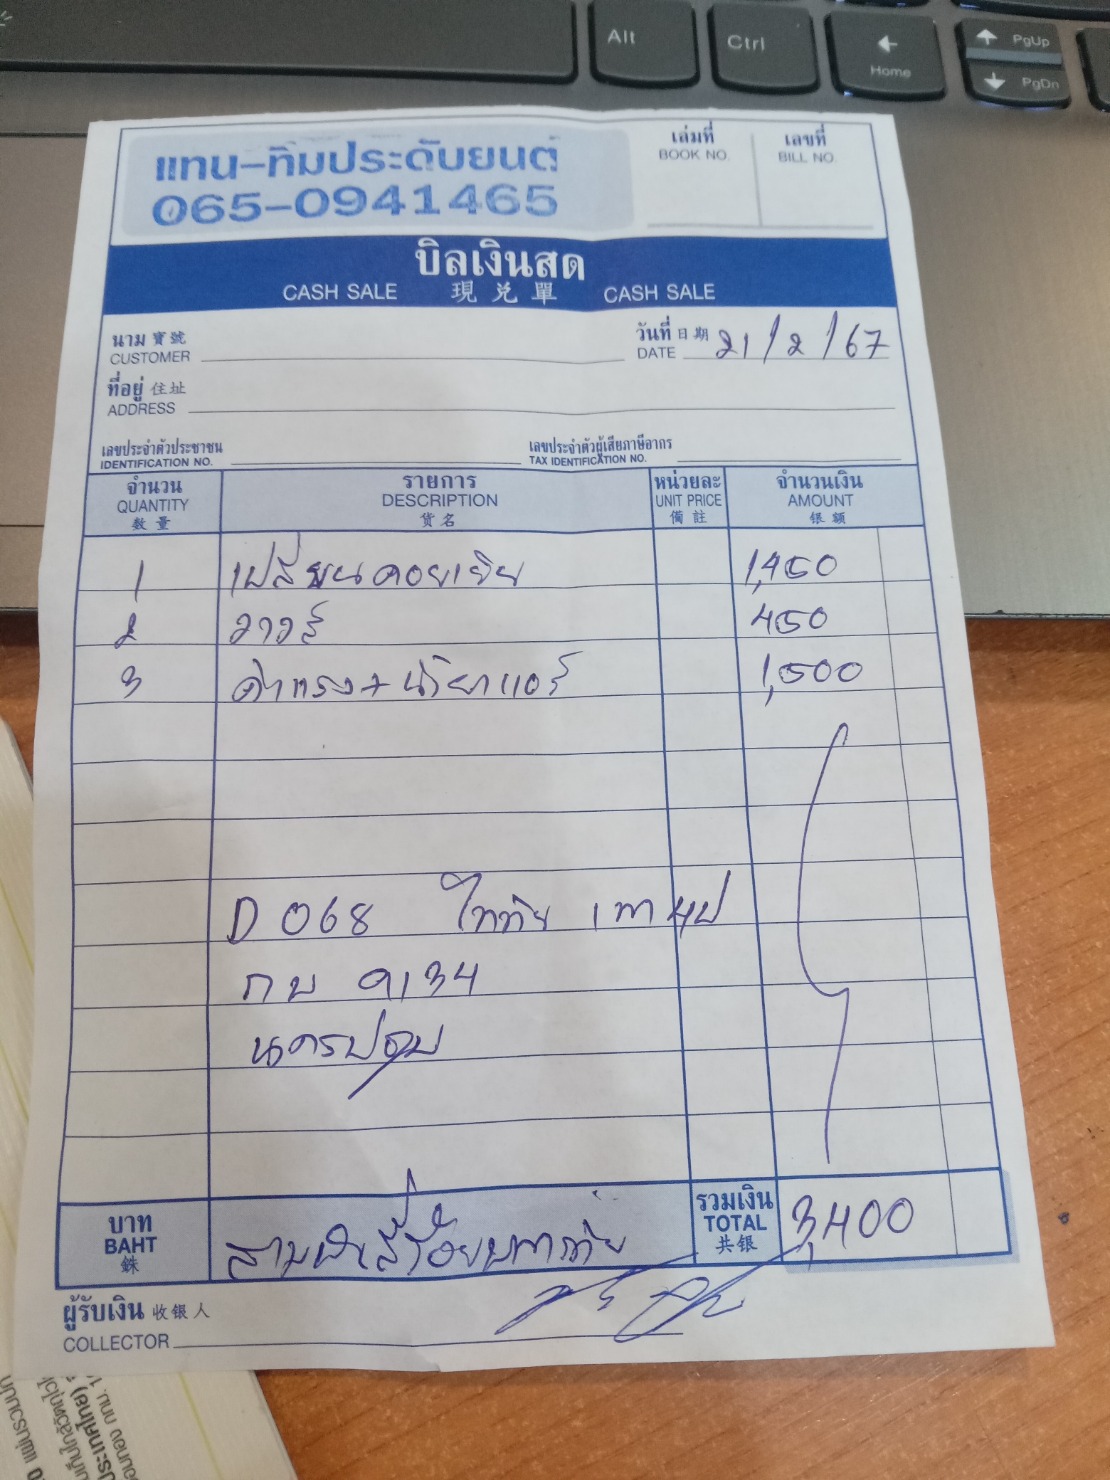 Alt
Ctrl
Home
PgUp
PgDn
แทน-ทิมประดับยนต์
065-0941465
เล่มที่
BOOK NO.
เลขที่
BILL NO.
บิลเงินสด
CASH SALE 現兑單 CASH SALE
นาม 寶號
CUSTOMER
วันที่ 日期
DATE 21/2/67
ที่อยู่ 住址
ADDRESS
เลขประจำตัวประชาชน
IDENTIFICATION NO.
เลขประจำตัวผู้เสียภาษีอากร
TAX IDENTIFICATION NO.
จำนวน
QUANTITY
数量
รายการ
DESCRIPTION
货名
หน่วยละ
UNIT PRICE
備註
จำนวนเงิน
AMOUNT
银额
1 เปลี่ยนคอยเย็น 1,450
2 วาวล์ 450
3 ค่าแรง+น้ำยาแอร์ 1,500
D 068
กบ 9134
นครปฐม
บาท
BAHT
銖
สามพันสี่ร้อยบาทถ้วน
รวมเงิน
TOTAL
共银
3,400
ผู้รับเงิน 收银人
COLLECTOR